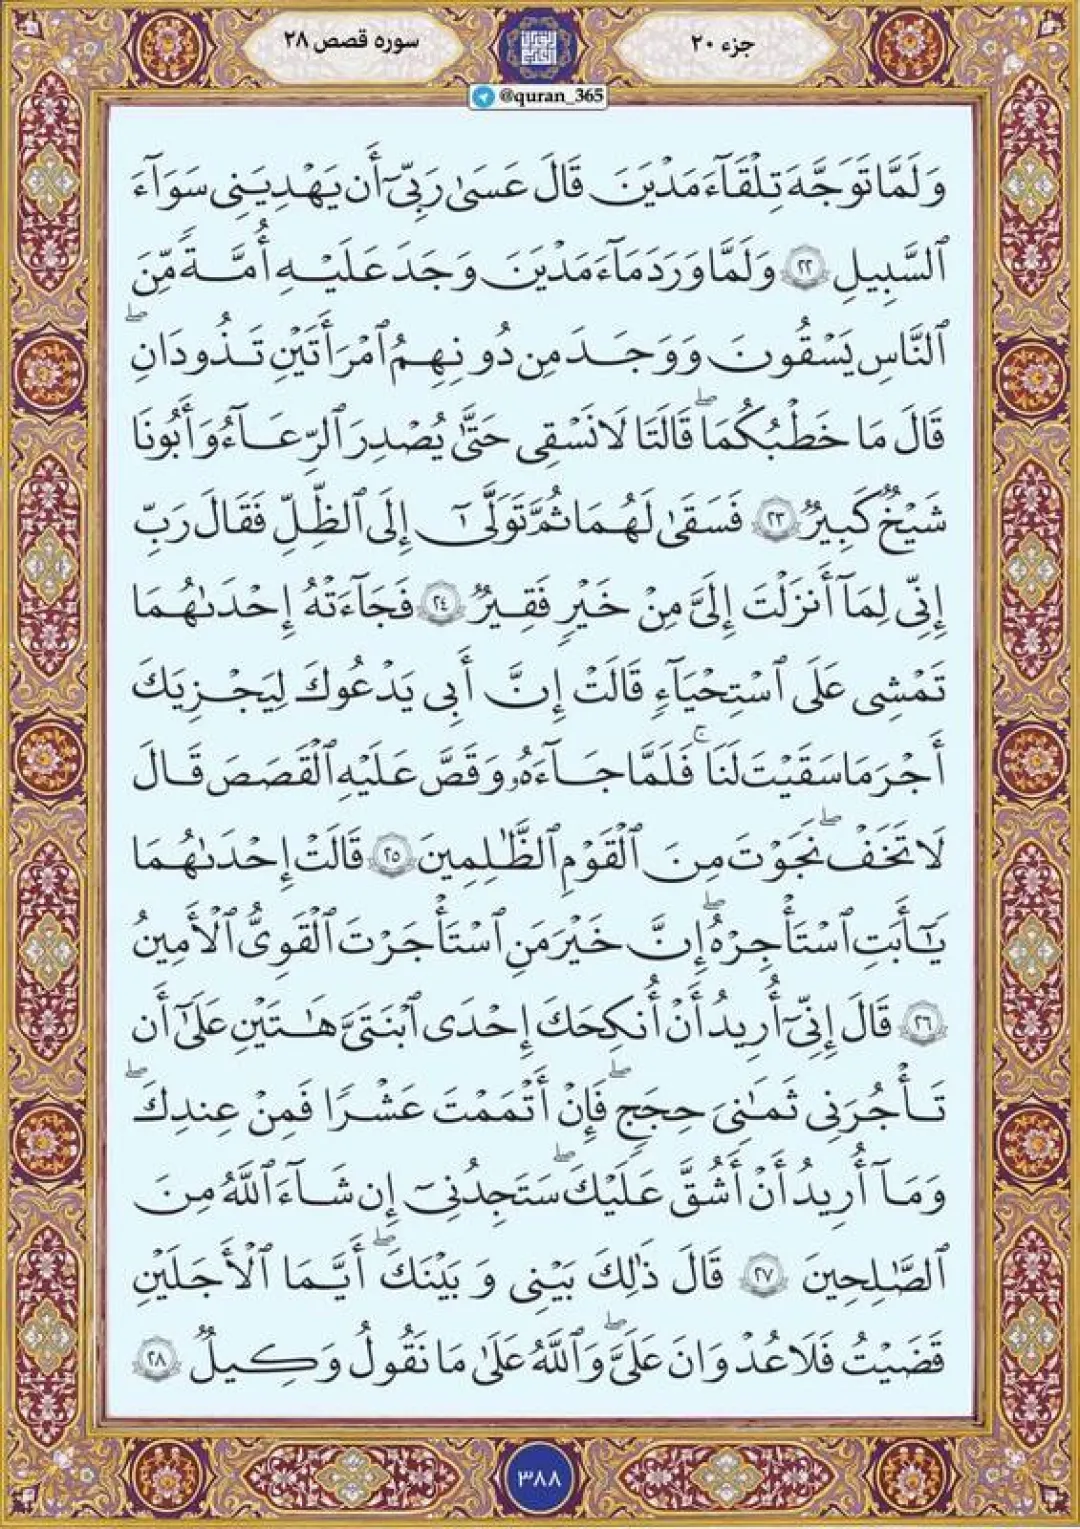 سوره قصص ٢٨
جزء ٢٠
@quran_365
وَلَمَّا تَوَجَّهَ تِلْقَآءَ مَدْيَنَ قَالَ عَسَىٰ رَبِّىٓ أَن يَهْدِيَنِى سَوَآءَ
ٱلسَّبِيلِ ٢٢ وَلَمَّا وَرَدَ مَآءَ مَدْيَنَ وَجَدَ عَلَيْهِ أُمَّةً مِّنَ
ٱلنَّاسِ يَسْقُونَ وَوَجَدَ مِن دُونِهِمُ ٱمْرَأَتَيْنِ تَذُودَانِ ۖ
قَالَ مَا خَطْبُكُمَا ۖ قَالَتَا لَا نَسْقِى حَتَّىٰ يُصْدِرَ ٱلرِّعَآءُ وَأَبُونَا
شَيْخٌ كَبِيرٌ ٢٣ فَسَقَىٰ لَهُمَا ثُمَّ تَوَلَّىٰٓ إِلَى ٱلظِّلِّ فَقَالَ رَبِّ
إِنِّى لِمَآ أَنزَلْتَ إِلَىَّ مِنْ خَيْرٍ فَقِيرٌ ٢٤ فَجَآءَتْهُ إِحْدَىٰهُمَا
تَمْشِى عَلَى ٱسْتِحْيَآءٍ قَالَتْ إِنَّ أَبِى يَدْعُوكَ لِيَجْزِيَكَ
أَجْرَ مَا سَقَيْتَ لَنَا ۚ فَلَمَّا جَآءَهُۥ وَقَصَّ عَلَيْهِ ٱلْقَصَصَ قَالَ
لَا تَخَفْ ۖ نَجَوْتَ مِنَ ٱلْقَوْمِ ٱلظَّٰلِمِينَ ٢٥ قَالَتْ إِحْدَىٰهُمَا
يَٰٓأَبَتِ ٱسْتَأْجِرْهُ ۖ إِنَّ خَيْرَ مَنِ ٱسْتَأْجَرْتَ ٱلْقَوِىُّ ٱلْأَمِينُ
٢٦ قَالَ إِنِّىٓ أُرِيدُ أَنْ أُنكِحَكَ إِحْدَى ٱبْنَتَىَّ هَٰتَيْنِ عَلَىٰٓ أَن
تَأْجُرَنِى ثَمَٰنِىَ حِجَجٍ ۖ فَإِنْ أَتْمَمْتَ عَشْرًا فَمِنْ عِندِكَ ۖ
وَمَآ أُرِيدُ أَنْ أَشُقَّ عَلَيْكَ ۚ سَتَجِدُنِىٓ إِن شَآءَ ٱللَّهُ مِنَ
ٱلصَّٰلِحِينَ ٢٧ قَالَ ذَٰلِكَ بَيْنِى وَبَيْنَكَ ۖ أَيَّمَا ٱلْأَجَلَيْنِ
قَضَيْتُ فَلَا عُدْوَانَ عَلَىَّ ۖ وَٱللَّهُ عَلَىٰ مَا نَقُولُ وَكِيلٌ ٢٨
٣٨٨